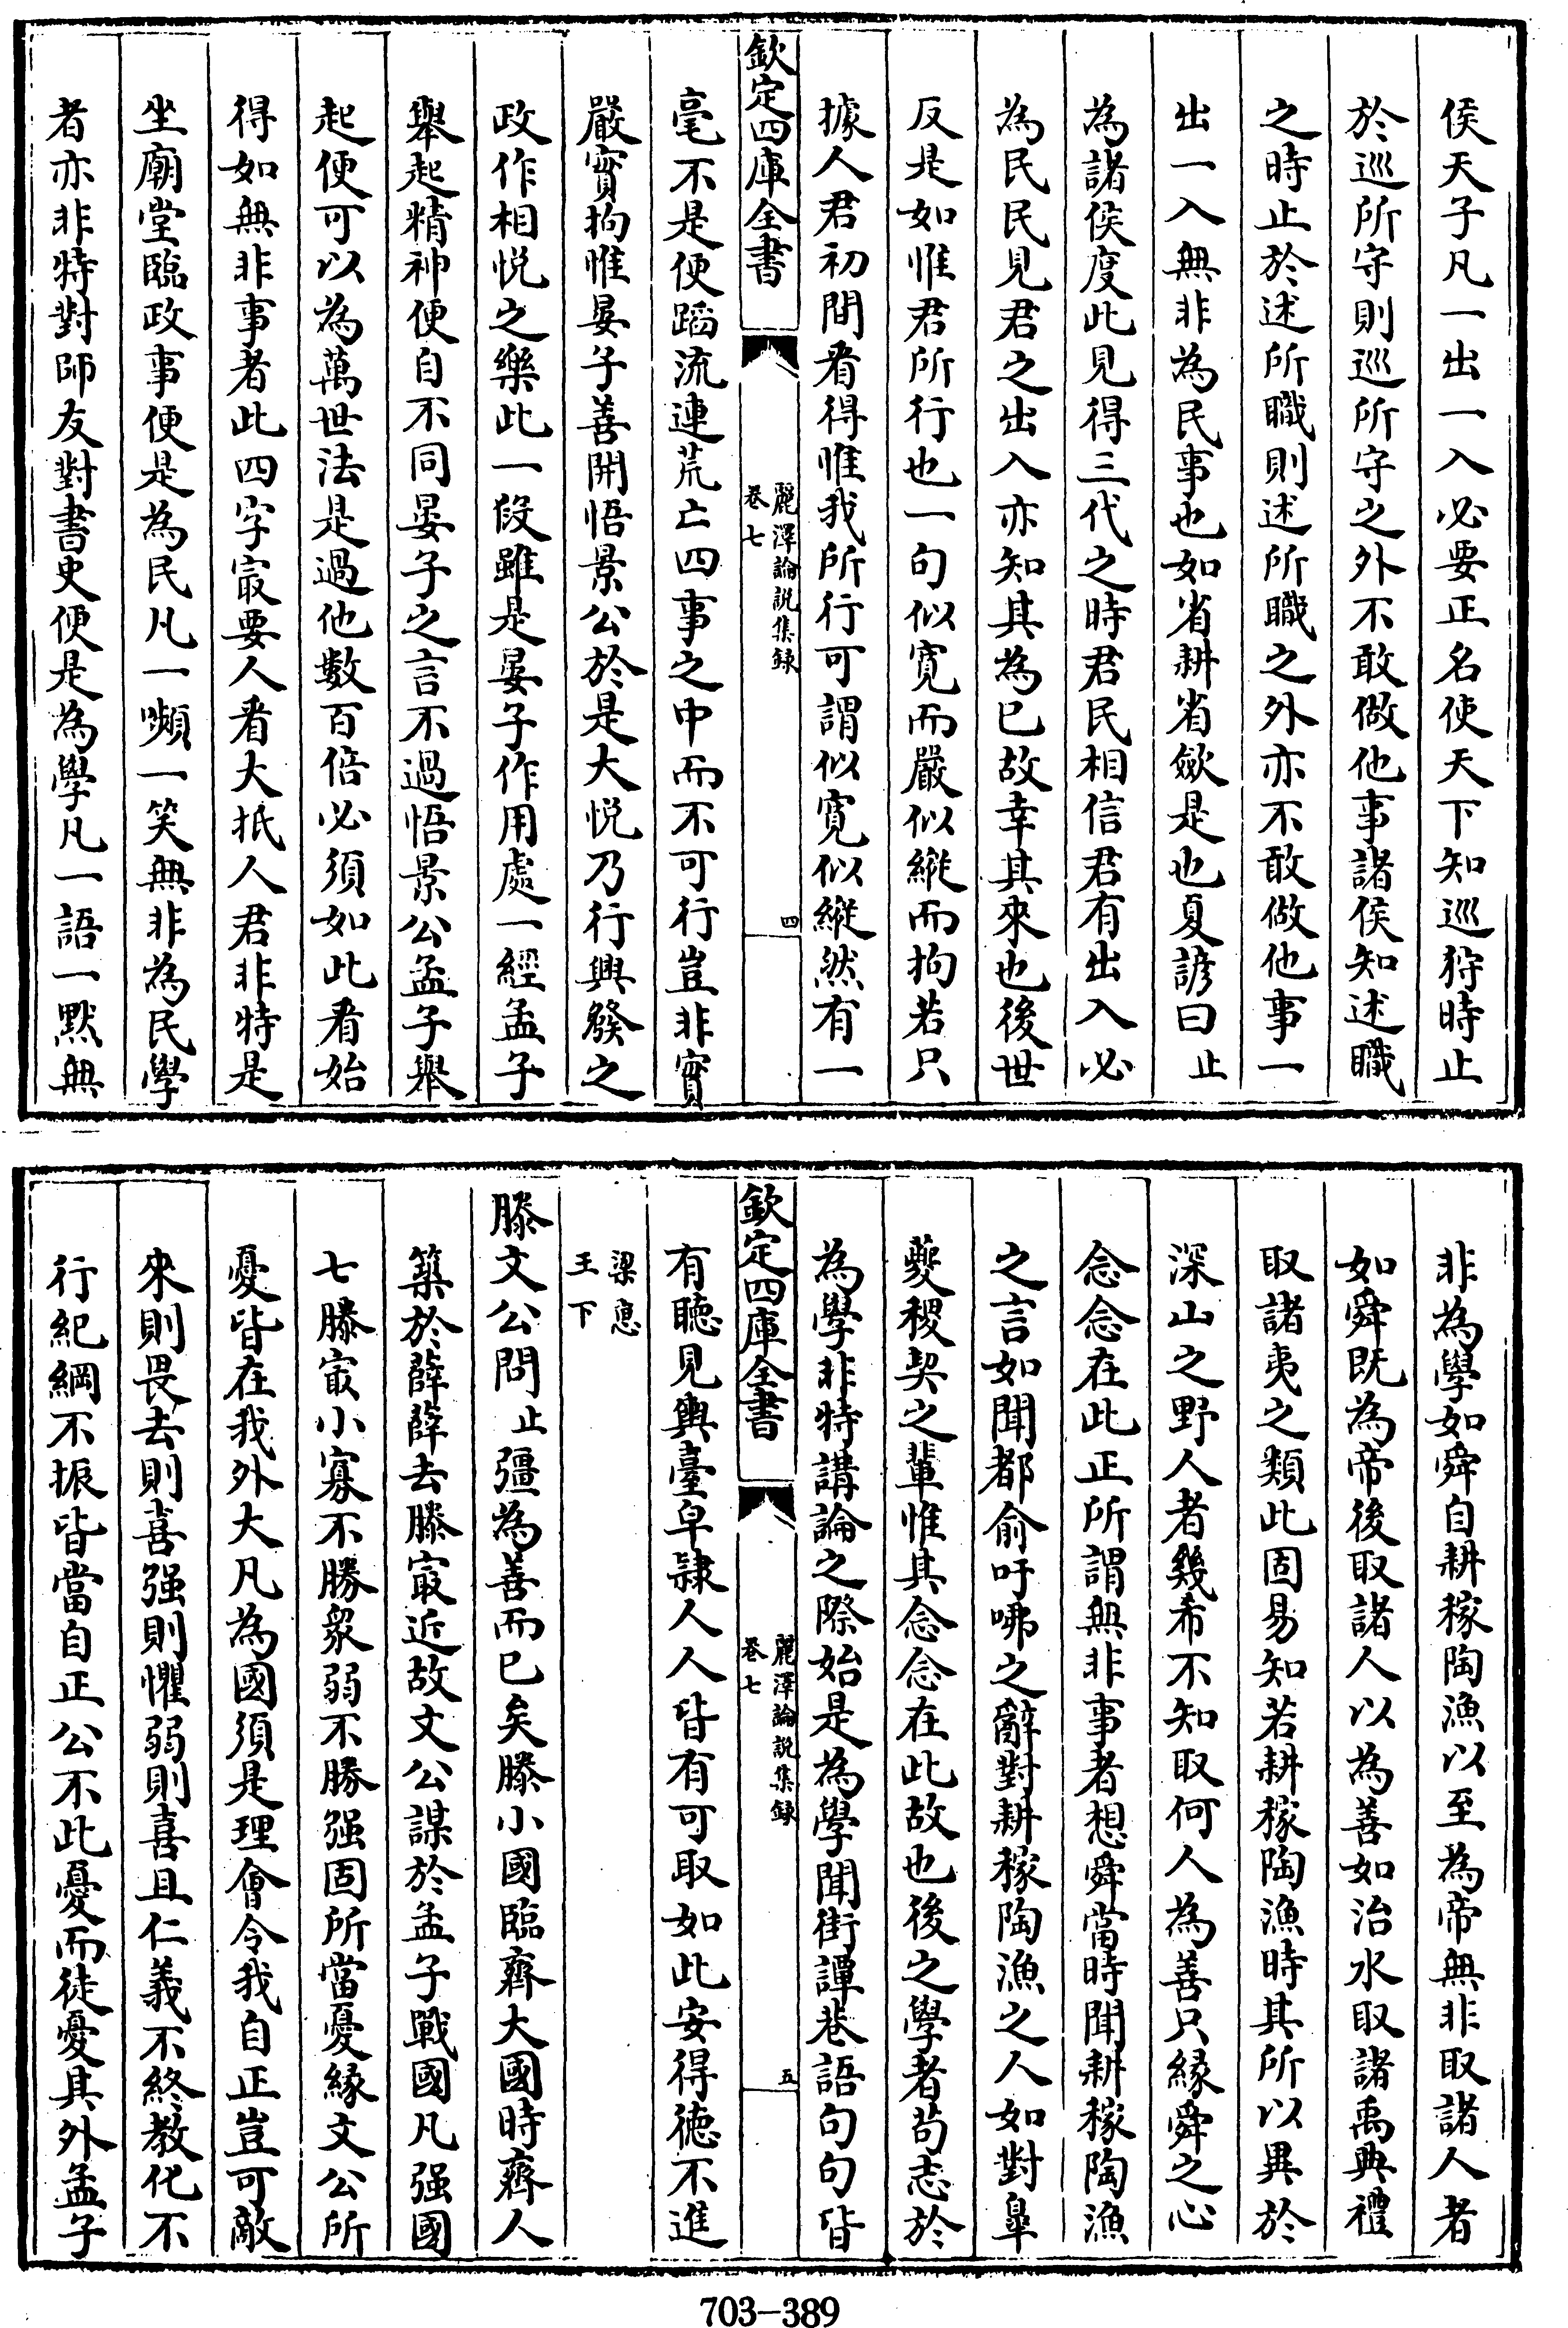 侯天子凡一出一入必要正名使天下知巡狩時止
於巡所守則巡所守之外不敢做他事諸侯知述職
之時止於述所職則述所職之外亦不敢做他事一
出一入無非為民事也如省耕省斂是也夏諺曰止
為諸侯度此見得三代之時君民相信君有出入必
為民民見君之出入亦知其為已故幸其來也後世
反是如惟君所行也一句似寛而嚴似縱而拘若只
據人君初間看得惟我所行可謂似寛似縱然有一
欽定四庫全書
麗澤論説集録
卷七
四
毫不是便蹈流連荒亡四事之中而不可行豈非實
嚴實拘惟晏子善開悟景公於是大悦乃行興發之
政作相悦之樂此一段雖是晏子作用處一經孟子
舉起精神便自不同晏子之言不過悟景公孟子舉
起便可以為萬世法是過他數百倍必須如此看始
得如無非事者此四字㝡要人看大抵人君非特是
坐廟堂臨政事便是為民凡一嚬一笑無非為民學
者亦非特對師友對書史便是為學凡一語一黙無
非為學如舜自耕稼陶漁以至為帝無非取諸人者
如舜既為帝後取諸人以為善如治水取諸禹典禮
取諸夷之類此固易知若耕稼陶漁時其所以異於
深山之野人者幾希不知取何人為善只縁舜之心
念念在此正所謂無非事者想舜當時聞耕稼陶漁
之言如聞都俞吁咈之辭對耕稼陶漁之人如對臯
夔稷契之輩惟其念念在此故也後之學者茍志於
為學非特講論之際始是為學聞街譚巷語句句皆
欽定四庫全書
麗澤論説集録
卷七
五
有聽見輿臺皁隷人人皆有可取如此安得徳不進
梁惠
王下
滕文公問止彊為善而已矣滕小國臨齊大國時齊人
築於薛薛去滕㝡近故文公謀於孟子戰國凡强國
七滕㝡小寡不勝衆弱不勝强固所當憂縁文公所
憂皆在我外大凡為國須是理會令我自正豈可敵
來則畏去則喜强則懼弱則喜且仁義不終教化不
行紀綱不振皆當自正公不此憂而徒憂其外孟子
703-389